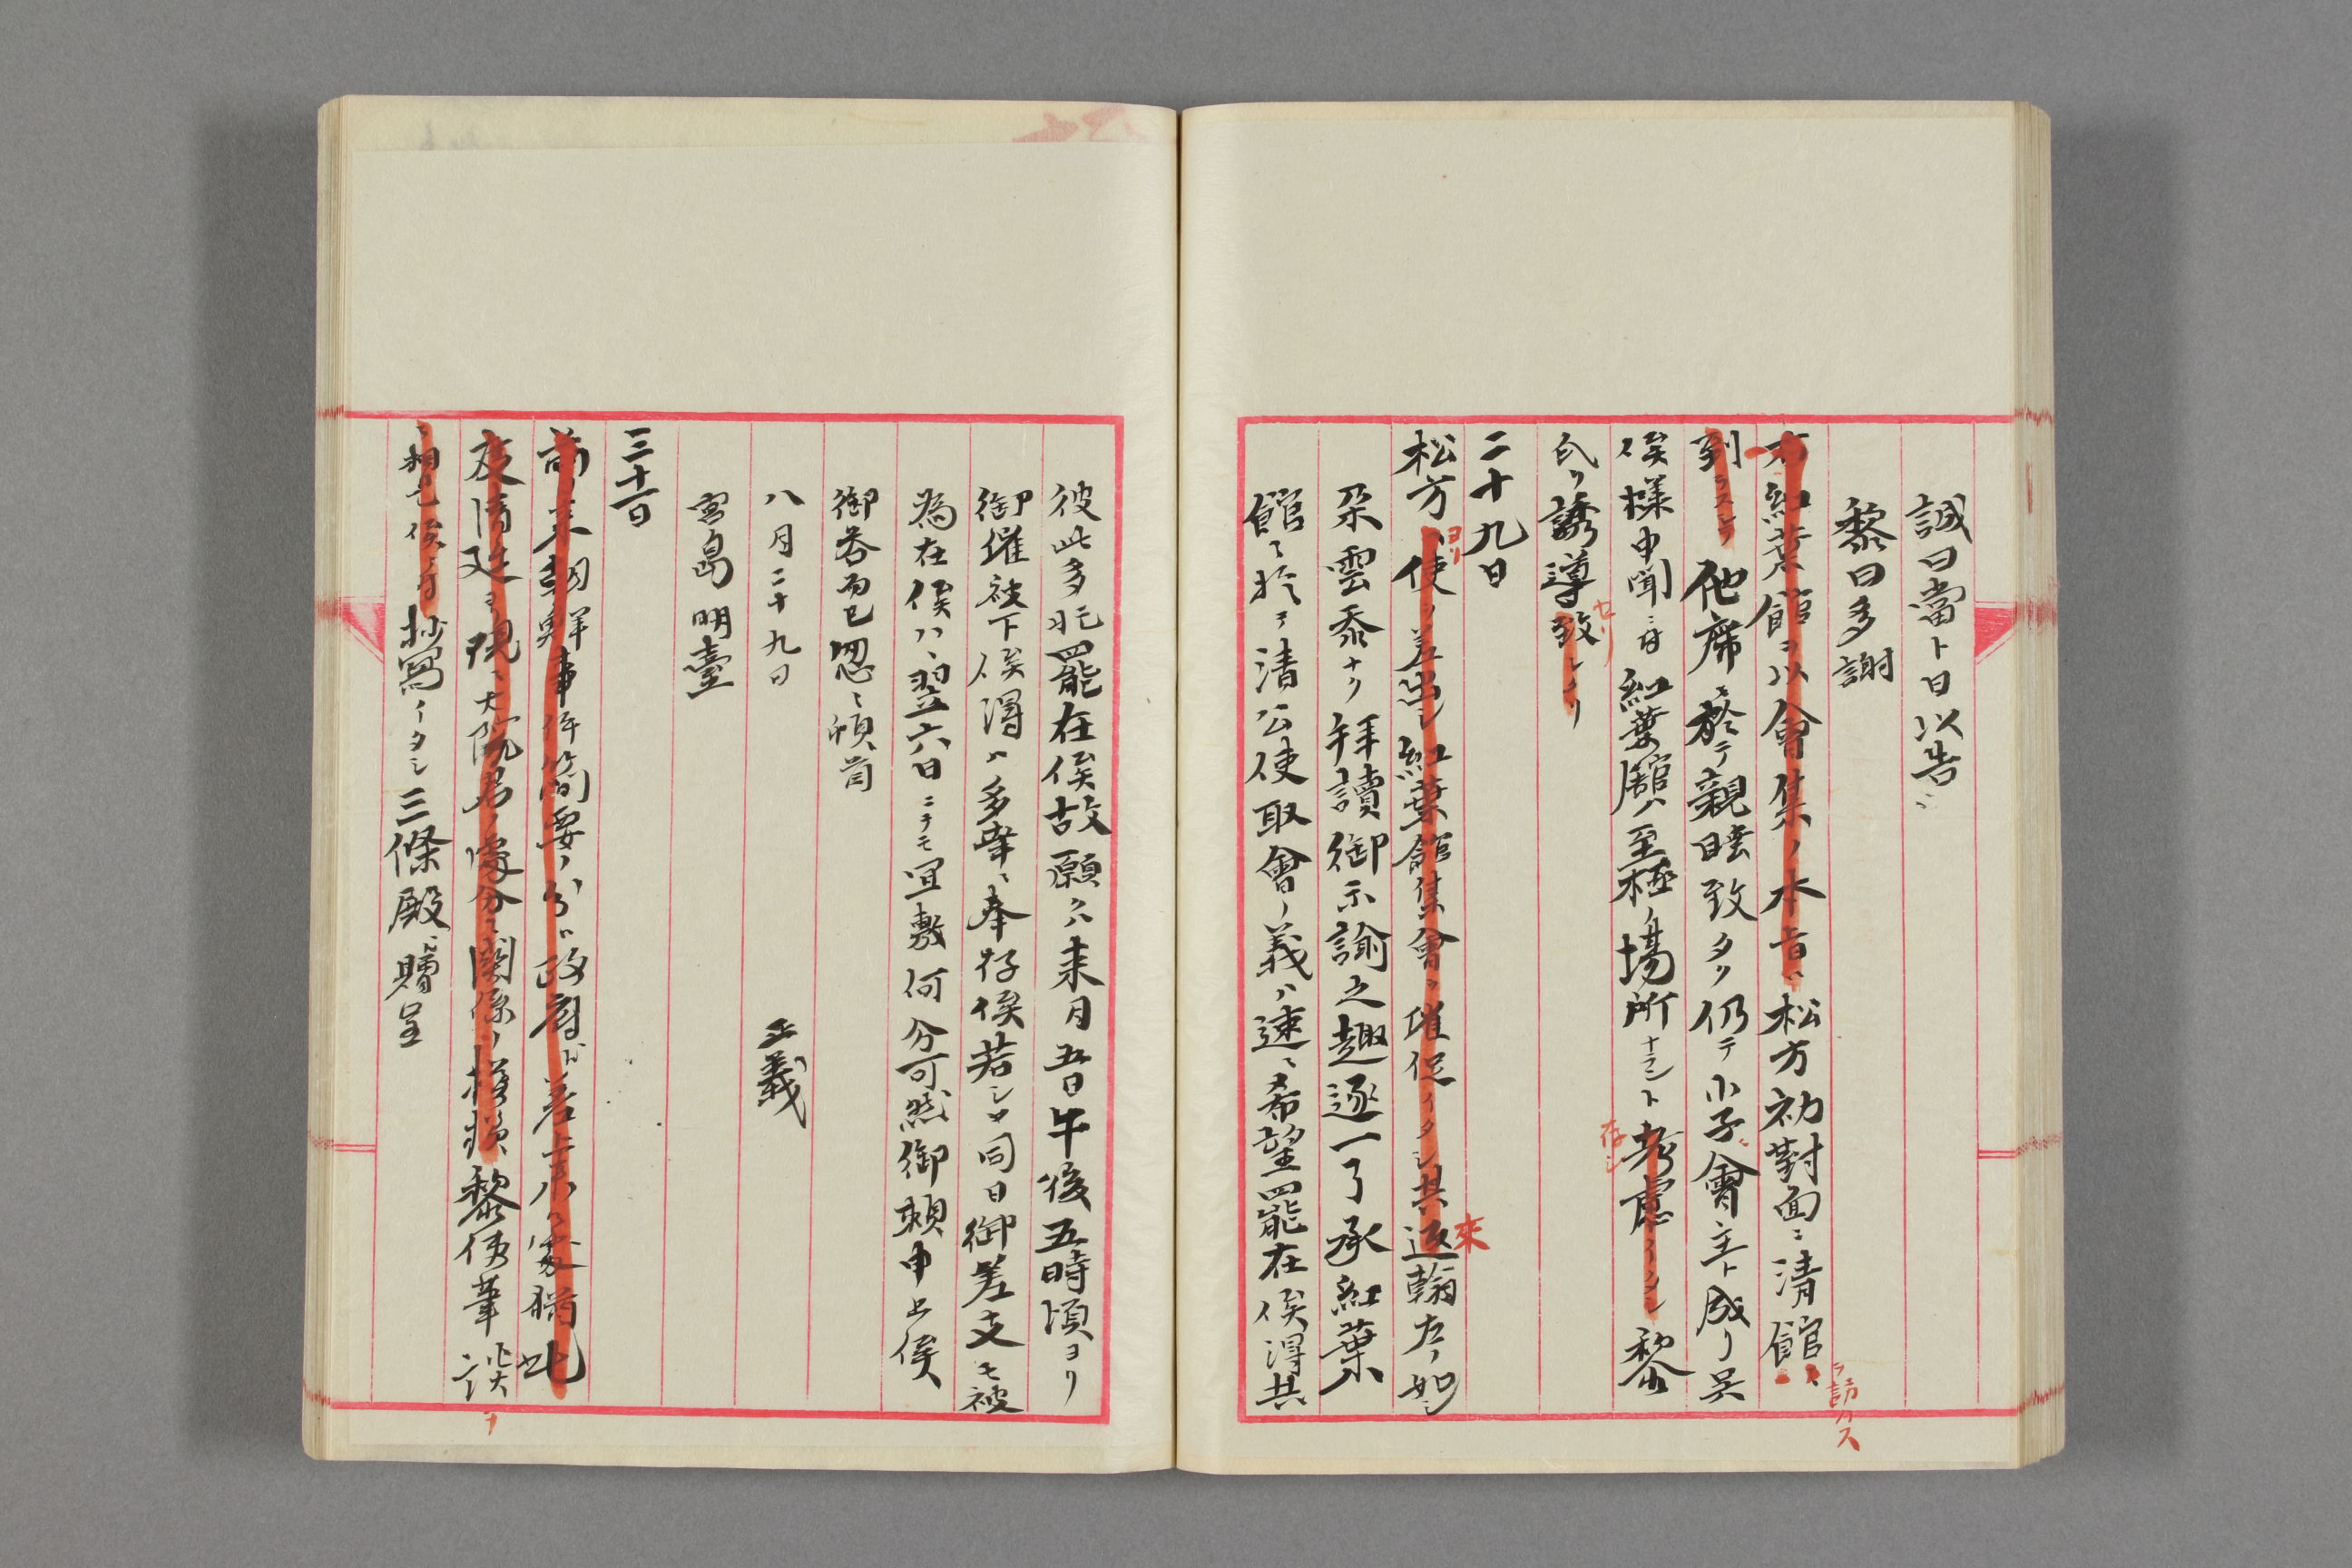 誠曰當卜日以告ニ
黎曰多謝
右紅葉館ヲ以會集ノ本旨ハ松方初對面ニ清館ヘ
ヲ訪ハス
到ラスシテ他席ニ於テ親睦致タク仍テ小子ニ會主ト成リ呉
候様申聞ニ付紅葉館ハ至極ノ場所ナラント考慮イタシ黎
存シ
氏ヲ誘導致シタリ
セリ
二十九日
松方ハ使ヲ差出シ紅葉館集會ヲ催促イタシ其返翰左ノ如シ
ヨリ
來
朶雲忝ナク拝讀御示諭之趣逐一了承紅葉
館ニ於テ清公使取會ノ義ハ速ニ希望罷在候得共
彼此多忙罷在候故願クハ来月五日午後五時頃ヨリ
御催被下候得ハ多幸ニ奉存候若シヤ同日御差支モ被
為在候ハヽ翌六日ニテモ宜敷何分可然御頼申上候
御答而已匆々頓首
八月二十九日
正義
宮島明臺
三十一日
前年朝鮮事件簡要ノ分ハ政府ヘ差上候處猶此
度清廷ヨリ現ニ大院君ノ處分ニ関係ノ模様黎使筆談
ヲ
ニ相見候ニ付抄寫イタシ三條殿ニ贈呈